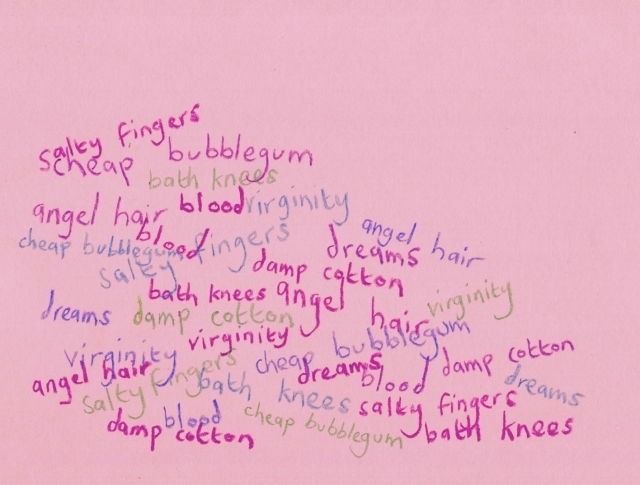 salty fingers
cheap bubblegum
bath knees
angel hair blood virginity
blood fingers angel hair
cheap bubblegum dreams
salty damp cotton
bath knees angel virginity
dreams damp cotton hair
virginity bubblegum
virginity cheap damp cotton
angel hair dreams blood
salty fingers bath knees dreams
blood salty fingers
damp cotton cheap bubblegum bath knees